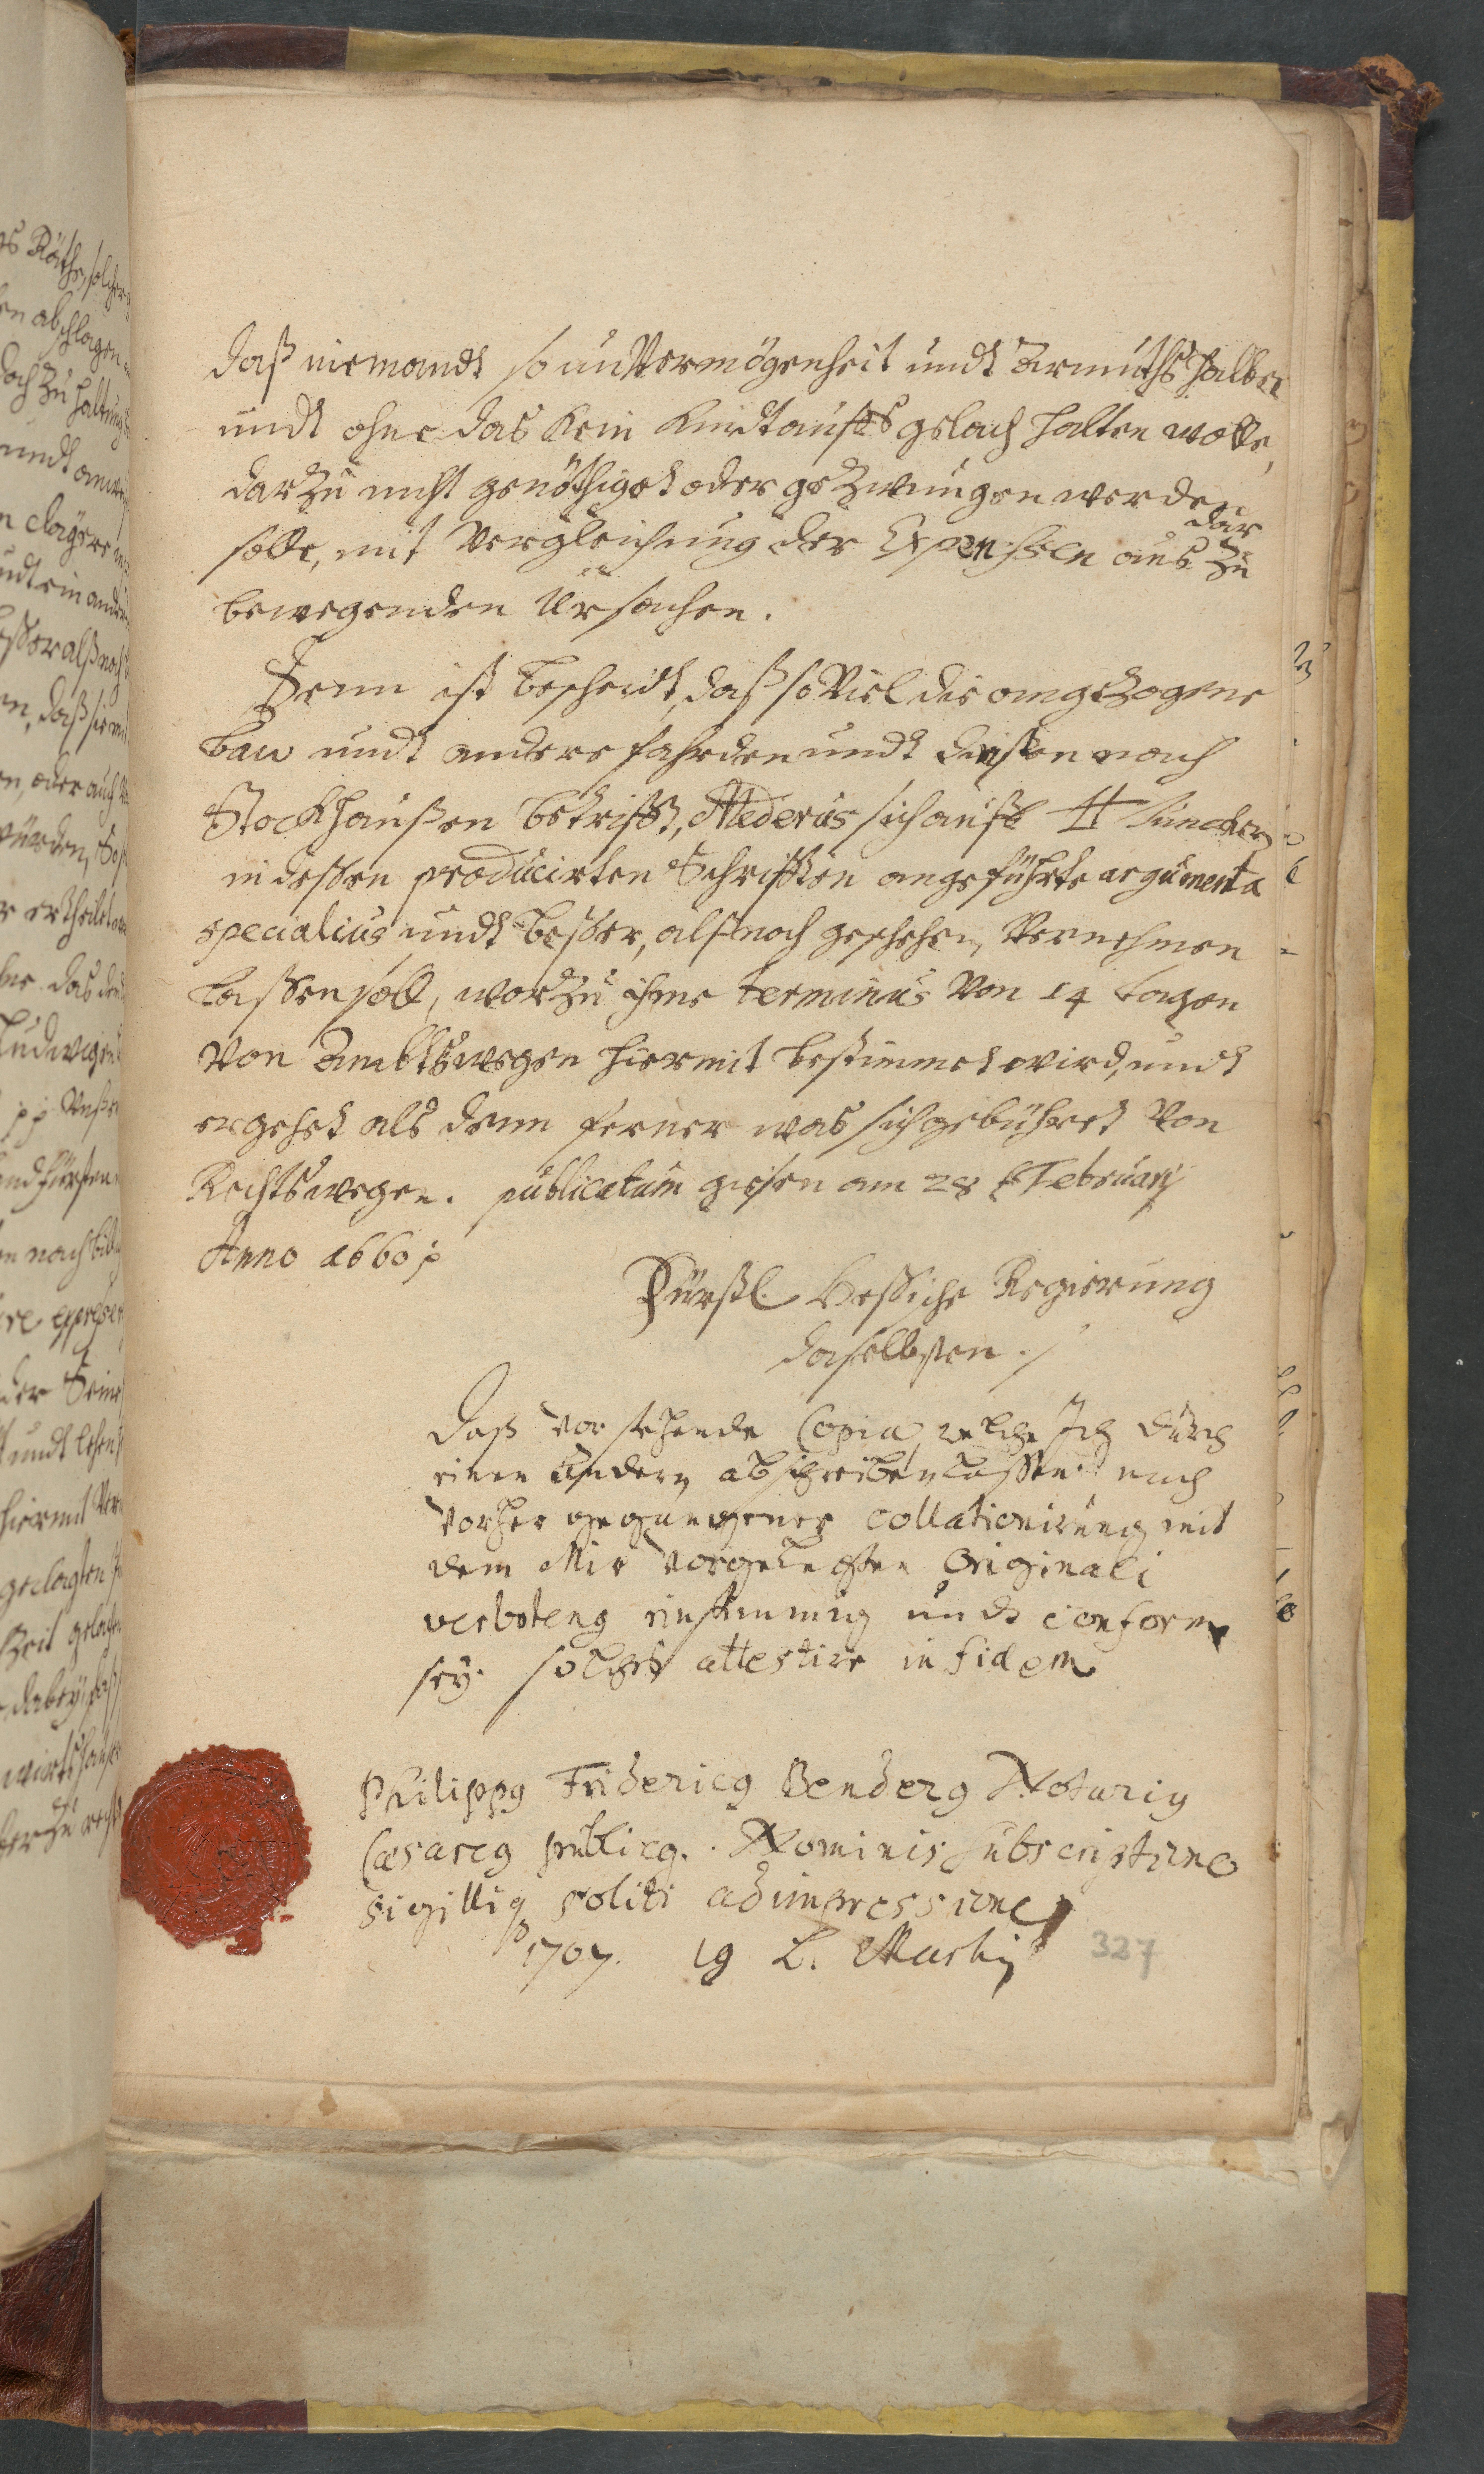 daß niemandt so unVermögenheit undt Armuths halber
undt ohne das Kein Kindtauffs gelach halten wolte,
darzu nicht genöthiget oder gezwungen werden
solle, mit Vergleichung der Expenssen aus darzu
bewegenden Ursachen.
Denn ist bescheidt, daß so Viel die angezogene
bau undt andere fahrden undt dinsten nach
Stockhaußen betrifft, Mederus sich auff H Junckern
in dessen producirten Schrifften angeführte argumenta
specialius undt besser, alß noch geschehen, Vernehmen
lassen soll, worzu ihme terminus Von 14 tagen
Von Ambtswegen hiermit bestimmet wird, undt
ergehet als dann ferner was sich gebühret Von
Rechtswegen. publicatum giesen am 28 Februarij
Anno 1660 p
Fürstl. Hessische Regierung
daselbsten.
Daß vorstehende Copia, welche Ich durch
einen Andern abschreiben lassen nach
vorher gegangener collationirung mit
dem Mir vorgelegten Originali
verbotenq einstimmig undt conform
sey. solches attestire in fidem
Philippq Fridericq Benderq Notariq
Cæsareq publicq. Nominis subscriptione
sigilliq soliti adimpressione
1707. 19 L. Martij
327